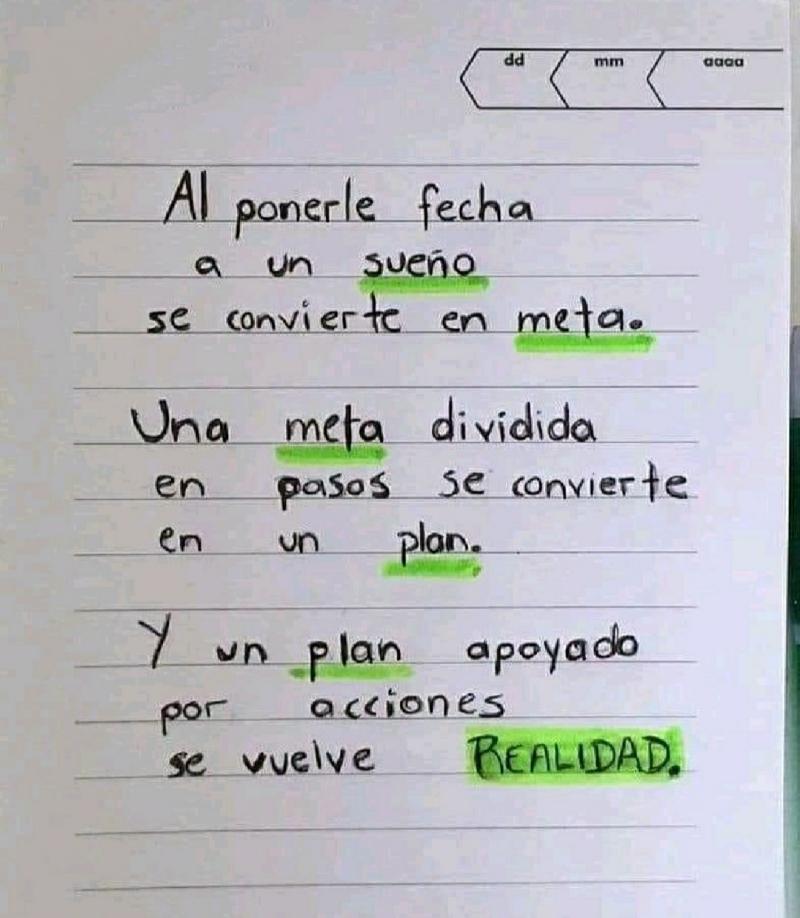 dd mm aaaa
Al ponerle fecha
a un sueño
se convierte en meta.
Una meta dividida
en pasos se convierte
en un plan.
Y un plan apoyado
por acciones
se vuelve REALIDAD.